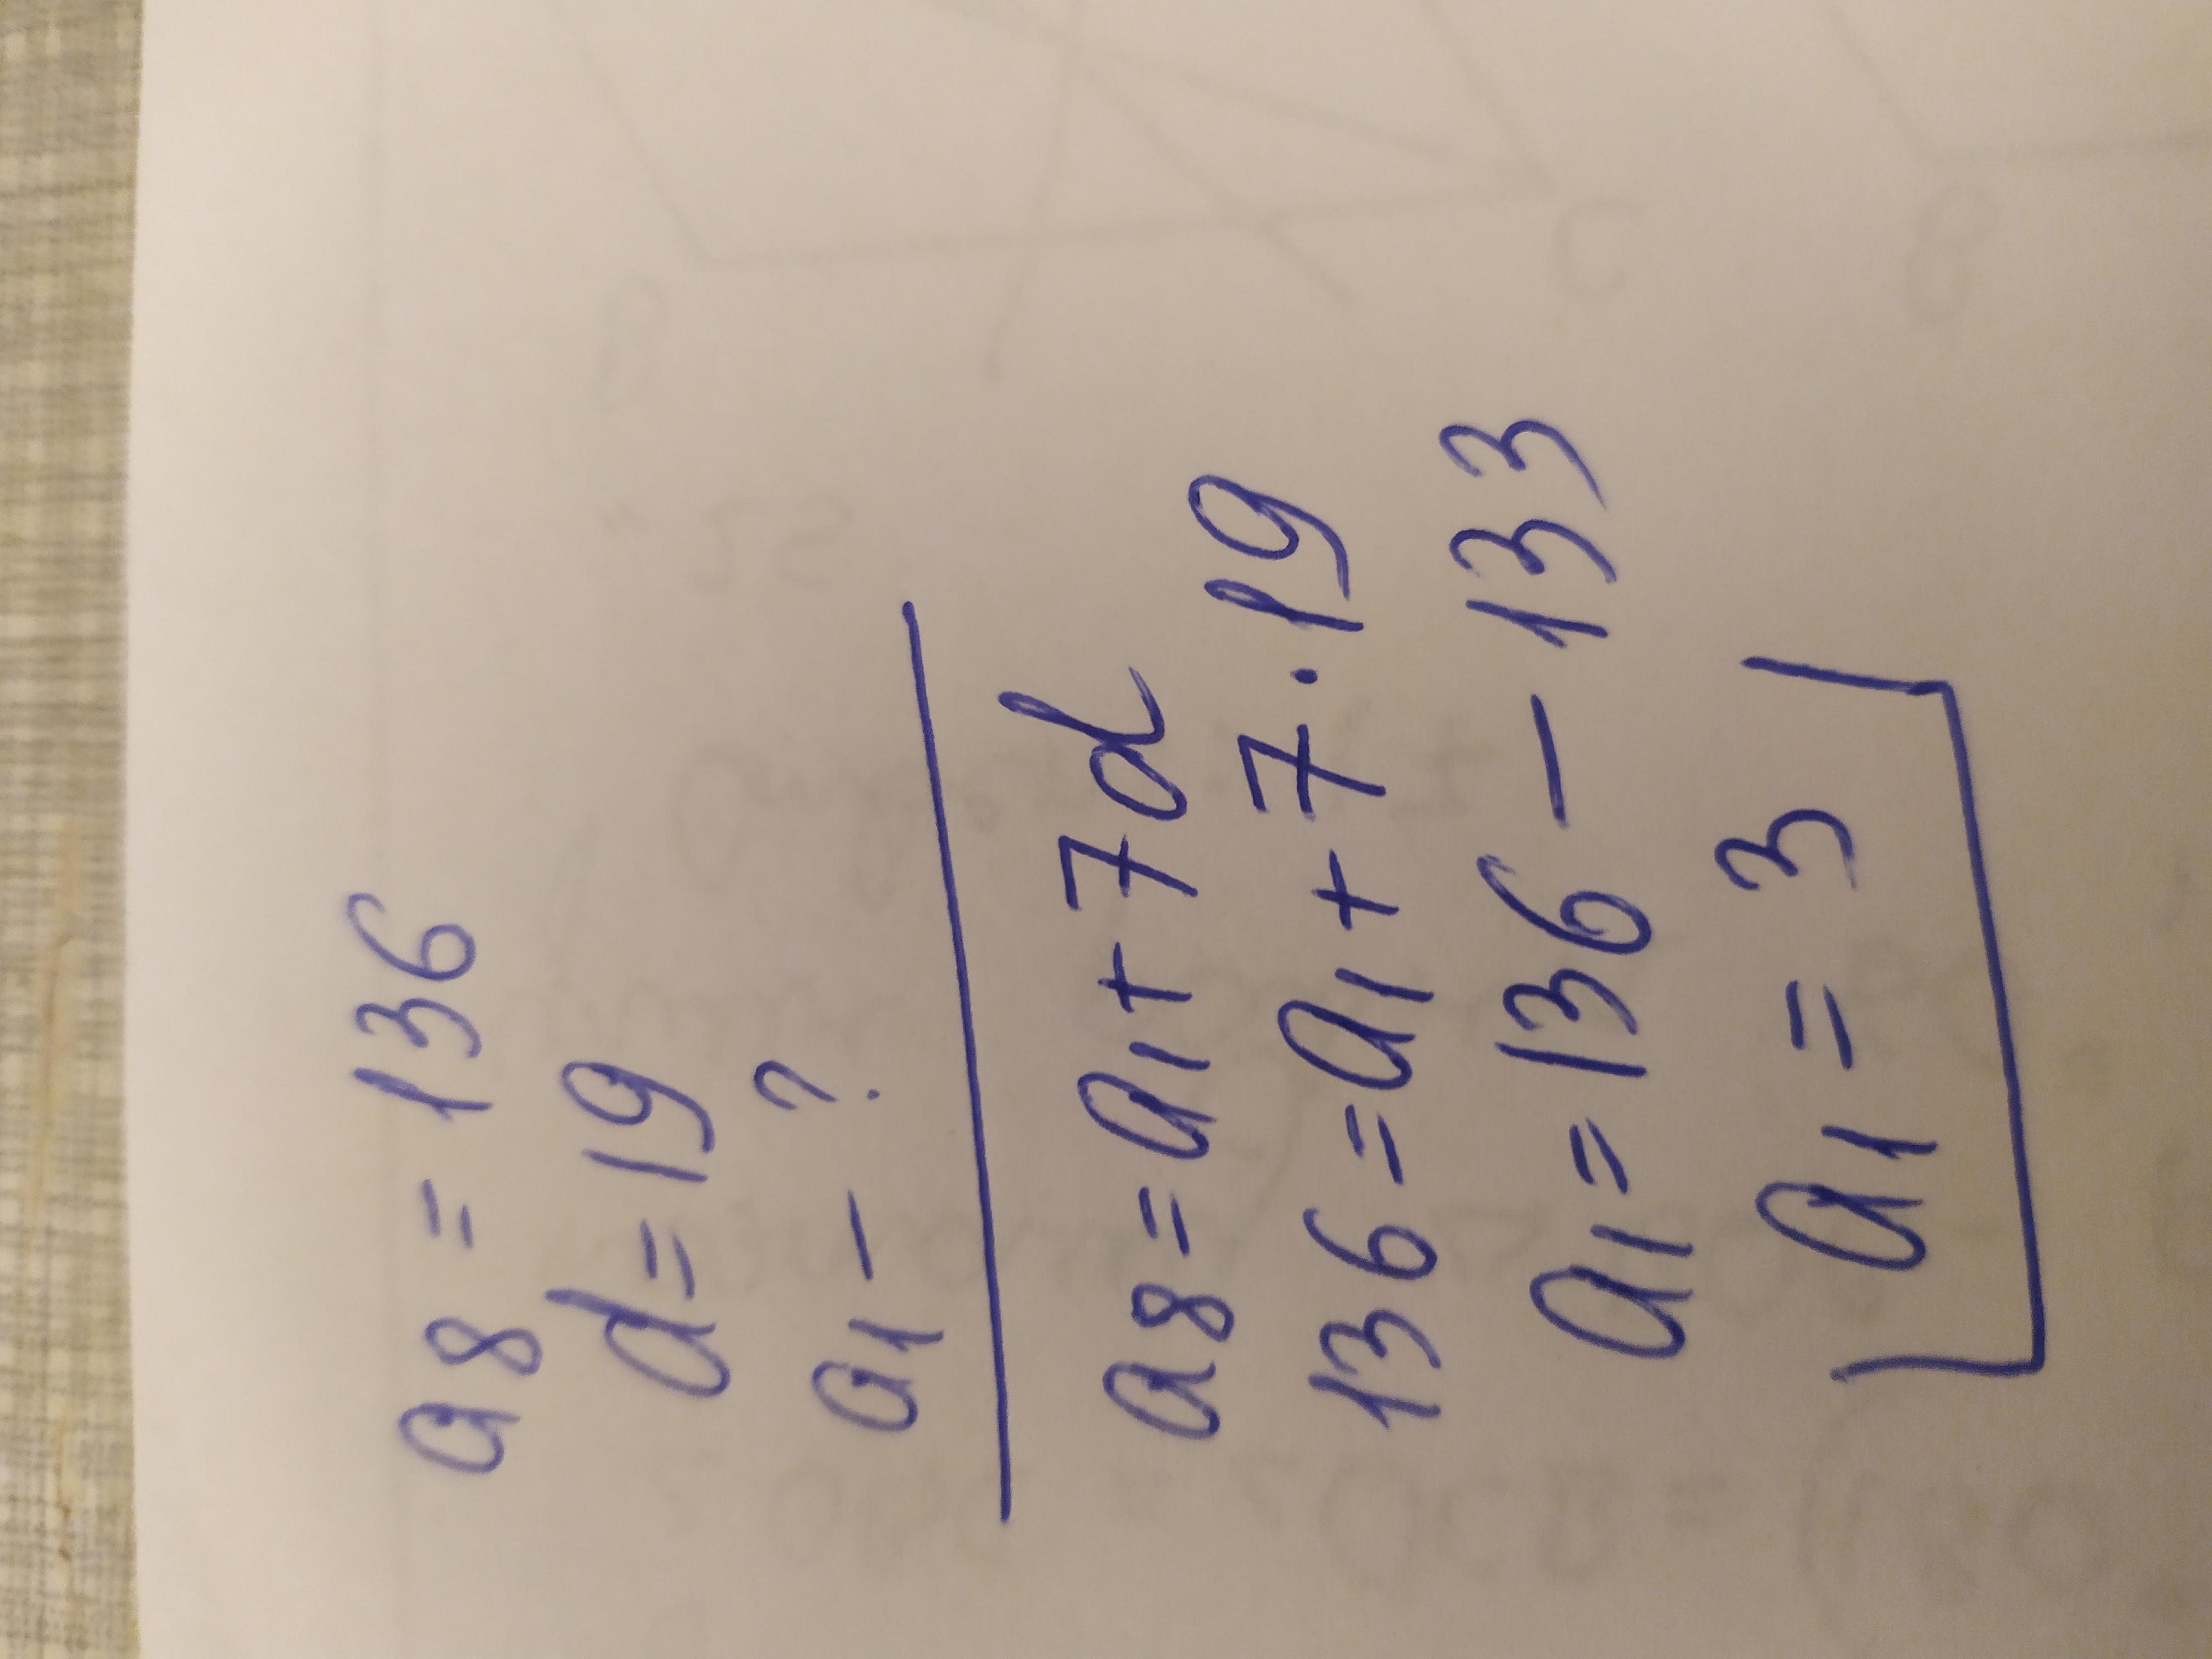 a8 = 136
d = 19
a1 - ?
a8 = a1 + 7d
136 = a1 + 7 . 19
a1 = 136 - 133
a1 = 3